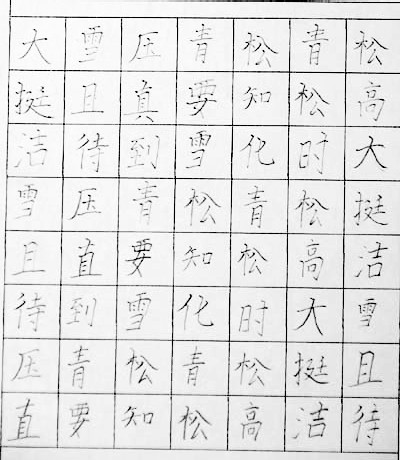 大雪压青松青松
挺且真要知松高
洁待到雪化时大
雪压青松青松挺
且直要知松高洁
待到雪化时大雪
压青松青松挺且
直要知松高洁待